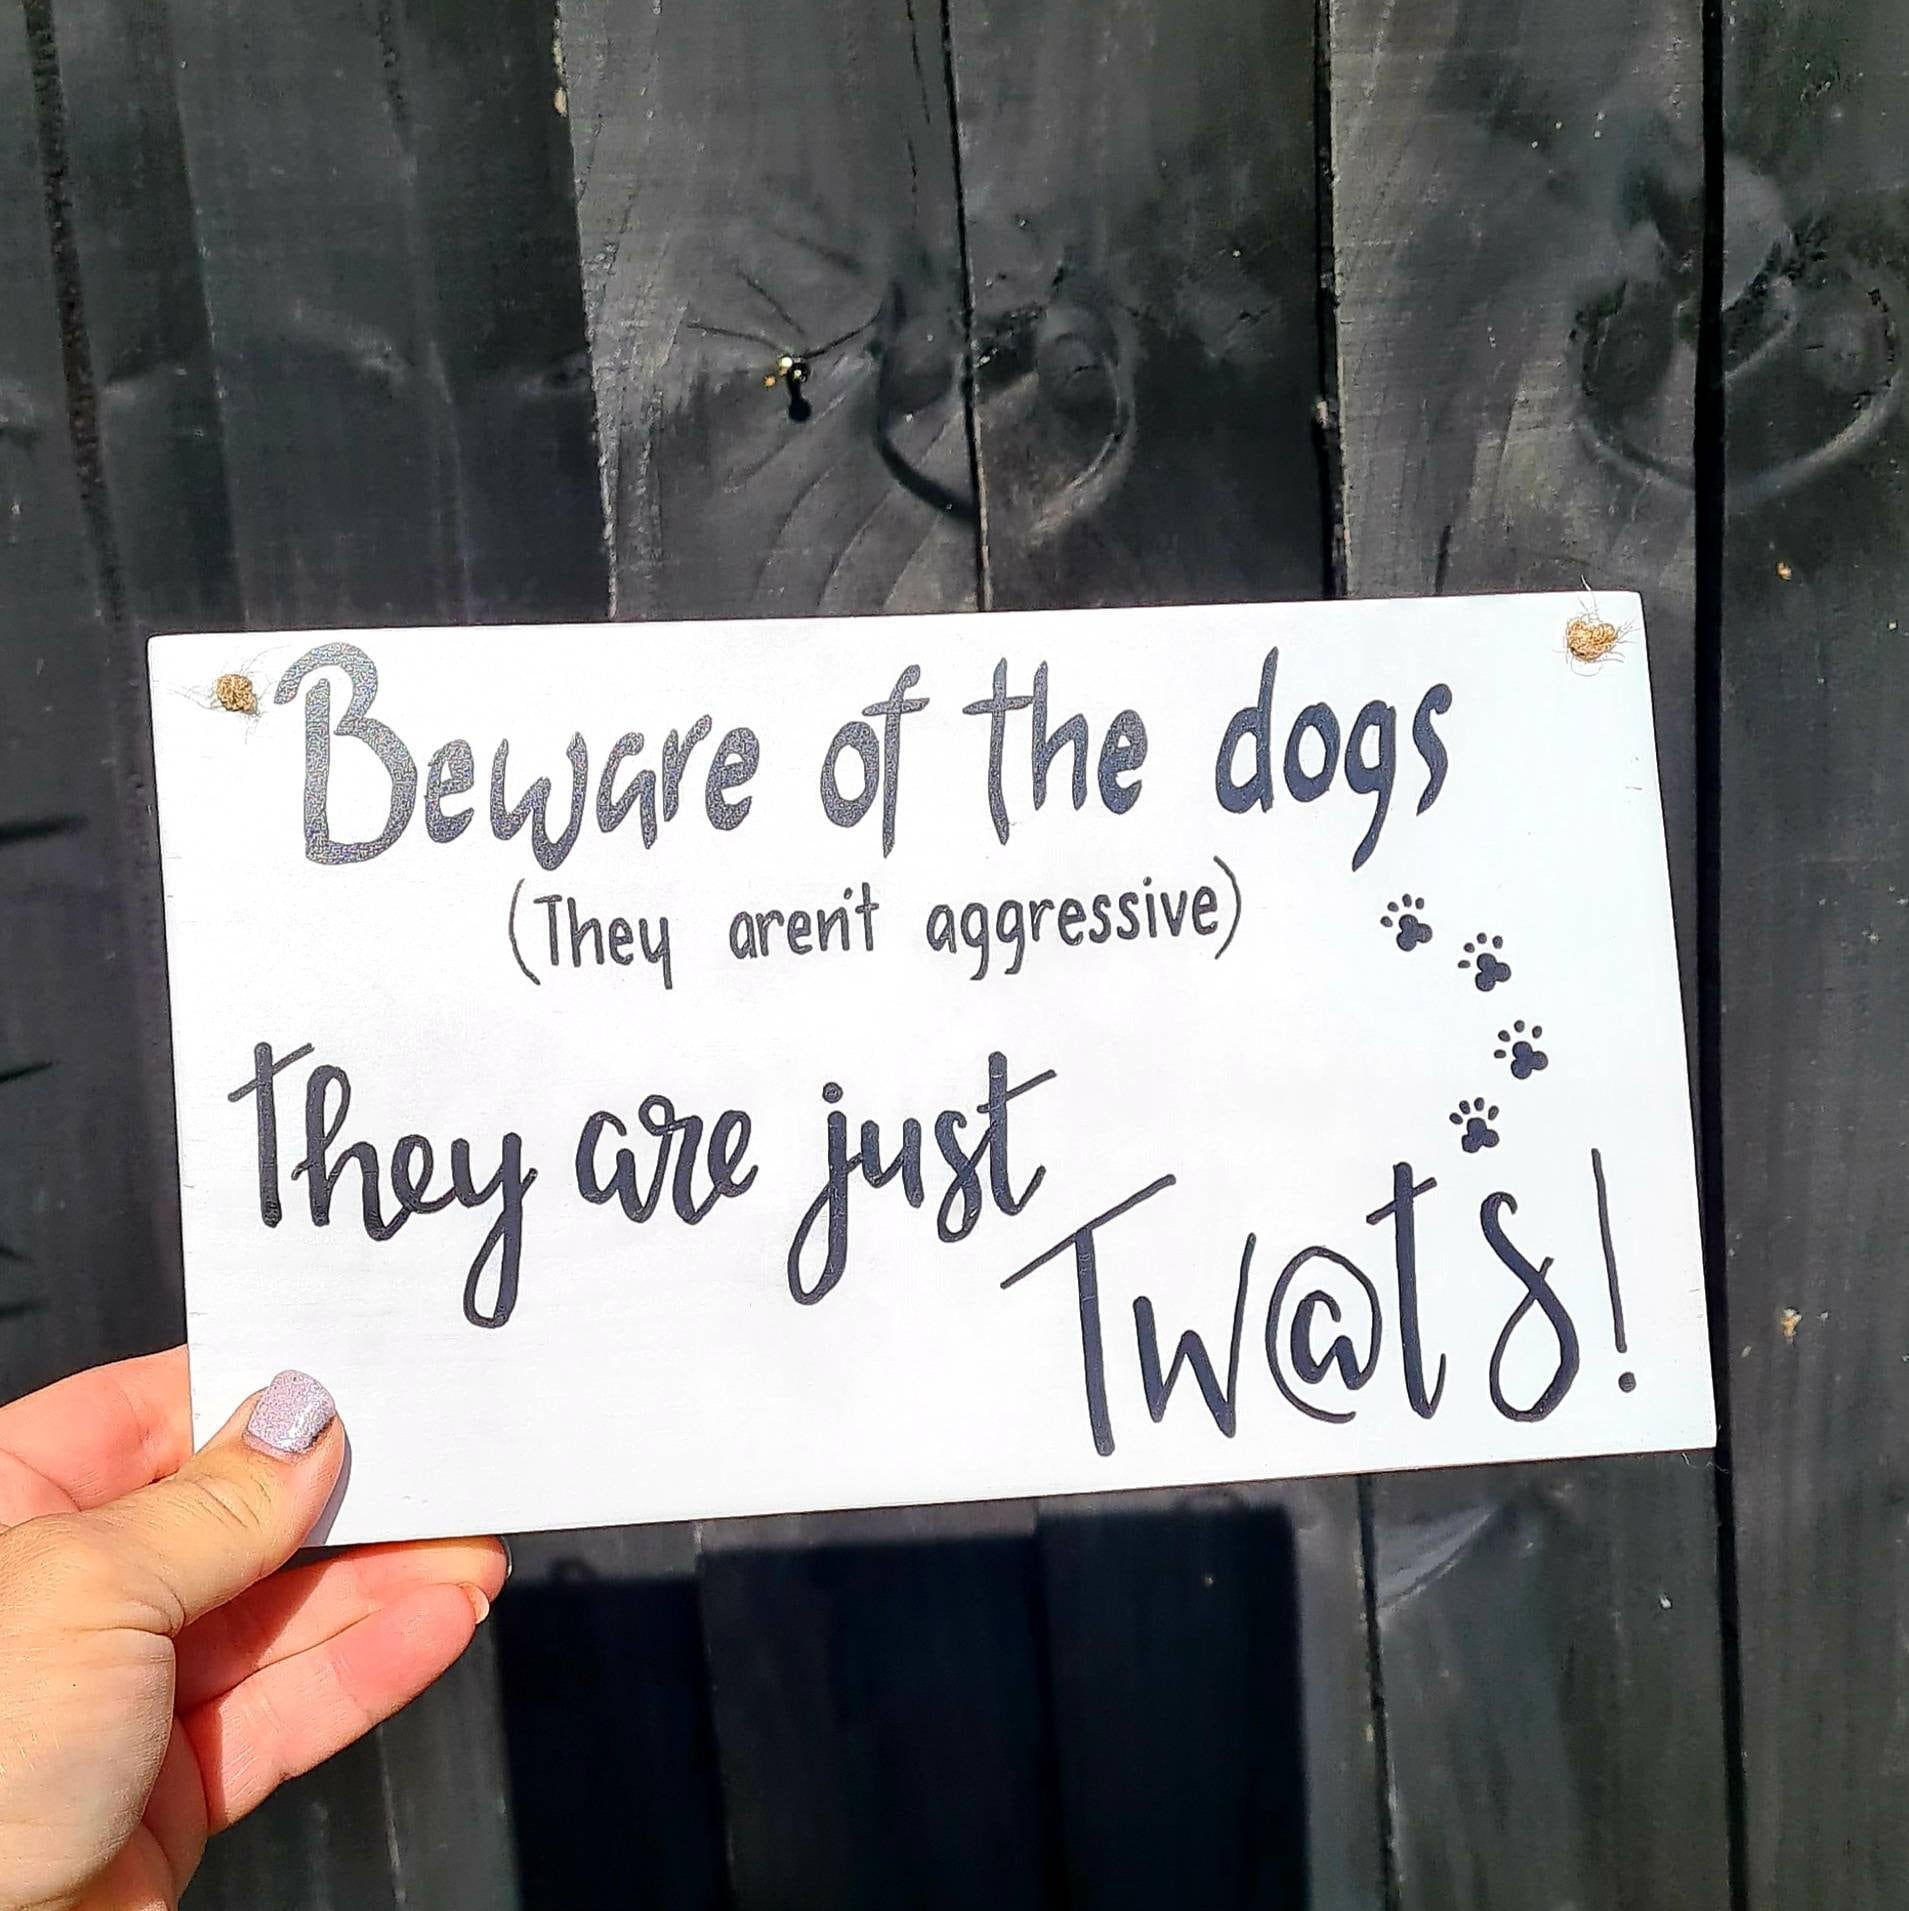 Beware of the dogs
(They aren't aggressive)
they are just
Tw@ts!